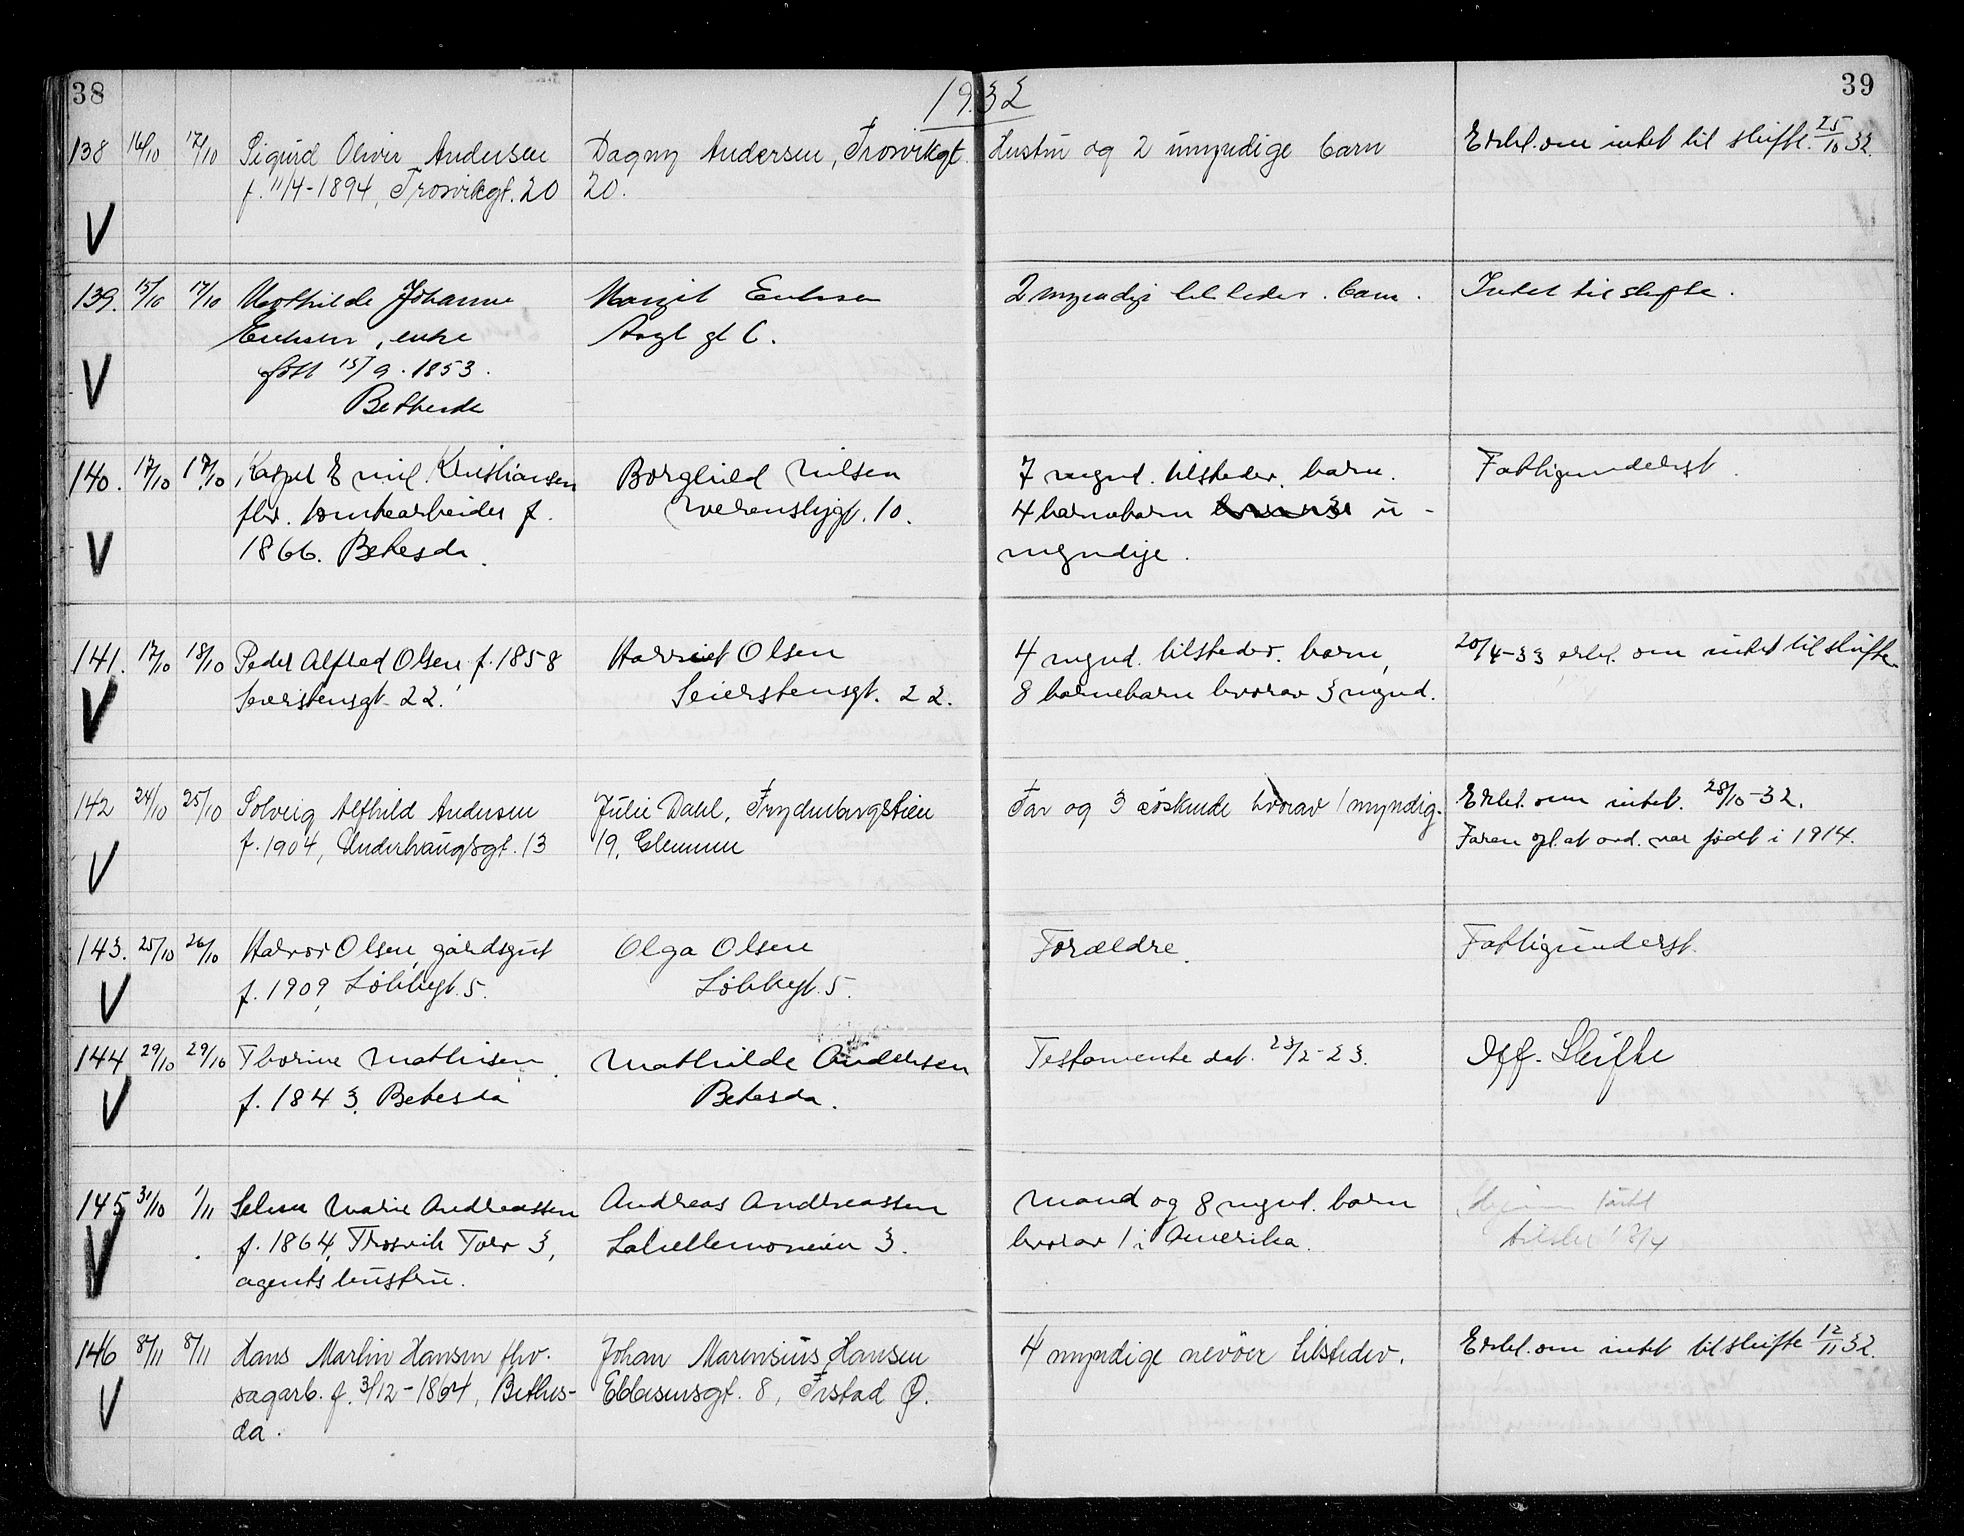 38
1932
39
138 16/10 17/10 Sigurd Oliver Andersen Dagny Andersen, Trosvikgt. Hustru og 2 umyndige barn Erkl. om intet til skifte. 25/10 32.
f. 11/4-1894, Trosvikgt. 20 20.
V
139. 15/10 17/10 Mathilde Johanne Margit Eriksen 2 myndige tilsteder. barn. Intet til skifte.
Eriksen, enke gt 6.
født 15/9. 1853.
V
Bethesda
140. 17/10 17/10 Kasper Emil Kristiansen Borghild Nilsen 7 mynd. tilsteder. barn. Fattigunderst.
fhv. tomtearbeider f. Werenskjgt. 10. 4 barnebarn u-
1866. Betesda. myndige.
V
141. 17/10 18/10 Peder Alfred Olsen f. 1858 Harriet Olsen 4 mynd. tilsteder. barn, 20/4-33 erkl. om intet til skifte.
Seierstensgt. 22. Seierstensgt. 22. 8 barnebarn hvorav 3 mynd.
V
142 24/10 25/10 Solveig Alfhild Andersen Julie Dahl, Frydenbergstien Far og 3 søskende hvorav 1 myndig. Erkl. om intet. 28/10-32.
f. 1904, Underhaugsgt. 13 19, Glemmen Faren opl. at avd. var født i 1914.
V
143. 25/10 26/10 Halvor Olsen, gårdsgut Olga Olsen Forældre. Fattigunderst.
f. 1909, Løkkegt. 5. Løkkegt. 5.
V
144 29/10 29/10 Thorine Mathisen Mathilde Andersen Testamente dat. 23/2-23. Off. Skifte
f. 1843, Betesda Betesda.
V
145 31/10 1/11 Selma Marie Andreassen Andreas Andreassen Mand og 8 mynd. barn
f. 1864, Trosvik Torv 3, 3. hvorav 1 i Amerika.
agents hustru.
V
146 8/11 8/11 Hans Martin Hansen fhv. Johan Marensius Hansen 4 myndige nevøer tilsteder. Erkl. om intet til skifte 12/11 32.
sagarb. f. 3/12-1864, Bethes- Ebbesensgt. 8, Frstad Ø.
da.
V